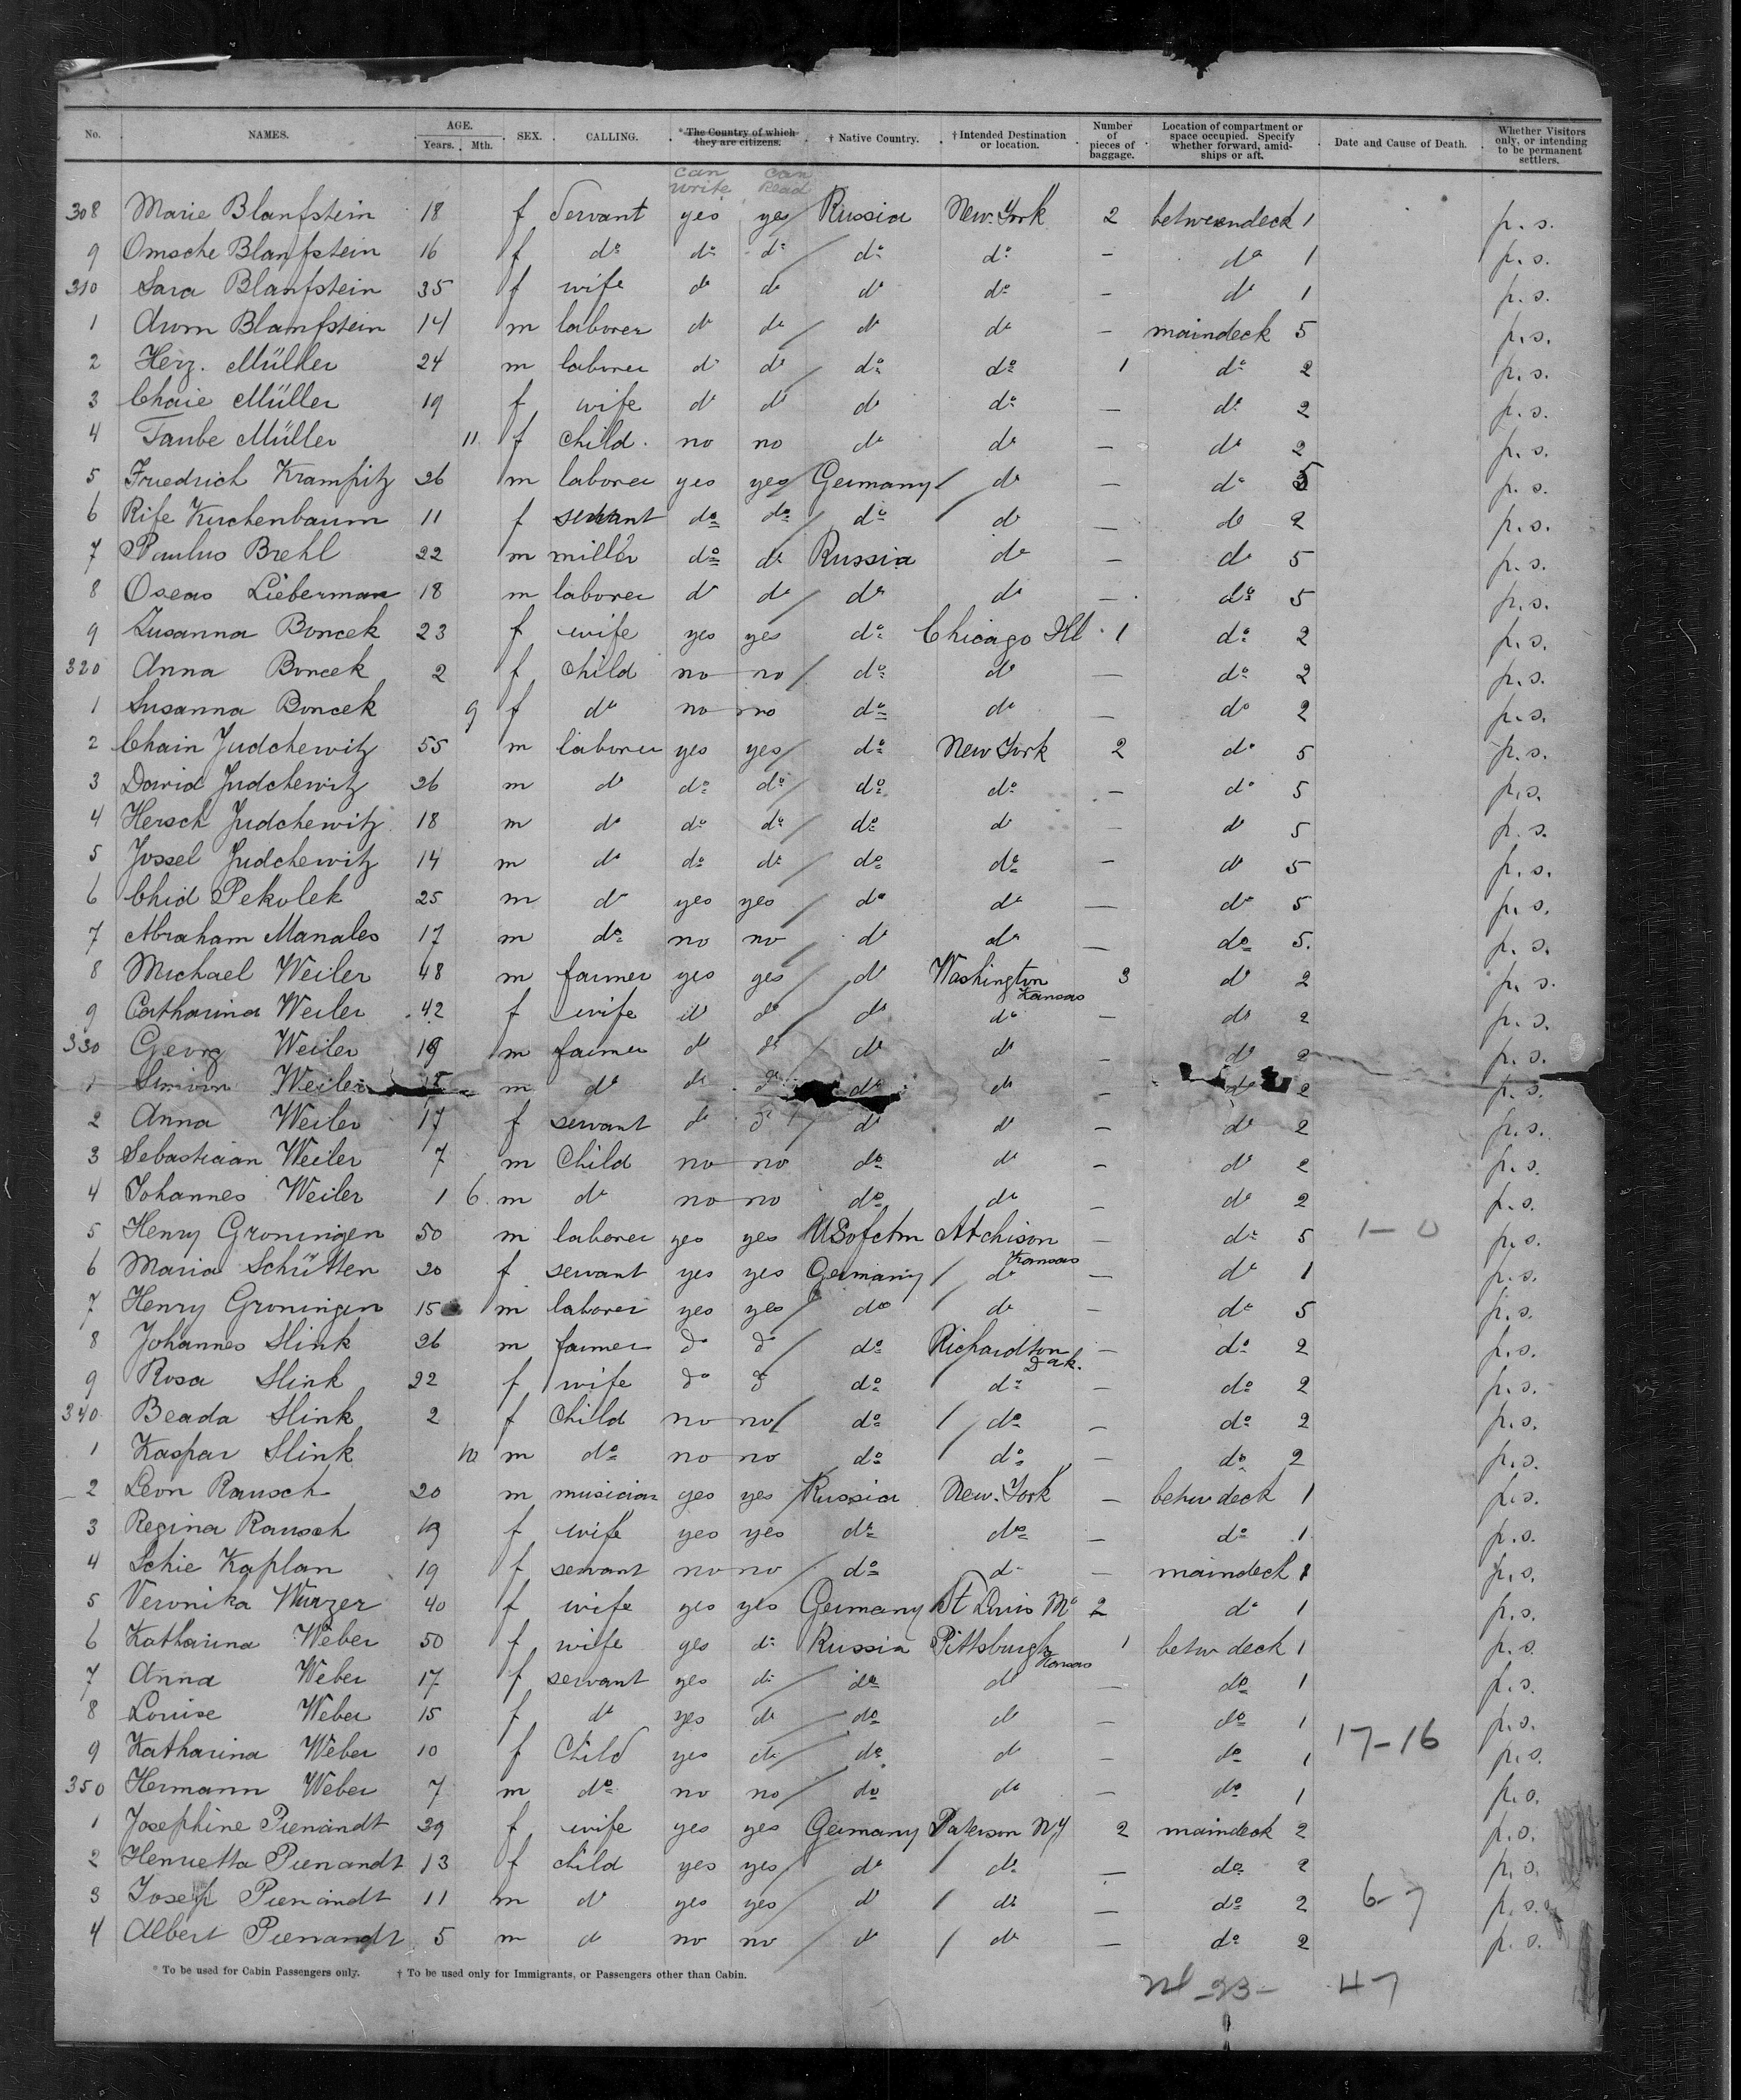 No. NAMES. AGE. Years. Mth. SEX. CALLING. * The Country of which they are citizens. † Native Country. † Intended Destination or location. Number of pieces of baggage. Location of compartment or space occupied. Specify whether forward, amidships or aft. Date and Cause of Death. Whether Visitors only, or intending to be permanent settlers.
can write can Read
308 Marie Blanfstein 18 f Servant yes yes / Russia New-York 2 betweendeck 1 p.s.
9 Omsche Blanfstein 16 f do do do / do do — do 1 p.s.
310 Sara Blanfstein 35 f wife do do do do — do 1 p.s.
1 Arom Blanfstein 14 m laborer do do / do do — maindeck 5 p.s.
2 Herz. Müller 24 m laborer do do / do do 1 do 2 p.s.
3 Chaie Müller 19 f wife do do do do — do 2 p.s.
4 Taube Müller 11 f child no no do do — do 2 p.s.
5 Friedrich Krampitz 26 m laborer yes yes / Germany / do — do 5 p.s.
6 Rife Kirchenbaum 11 f servant do do / do / do — do 2 p.s.
7 Paulus Brehl 22 m miller do do Russia do — do 5 p.s.
8 Oseas Lieberman 18 m laborer do do / do do — do 5 p.s.
9 Susanna Boncek 23 f wife yes yes do Chicago Ill 1 do 2 p.s.
320 Anna Boncek 2 f child no no / do do — do 2 p.s.
1 Susanna Boncek 9 f do no no do do — do 2 p.s.
2 Chain Judchewitz 55 m laborer yes yes / do New York 2 do 5 p.s.
3 David Judchewitz 26 m do do do / do do — do 5 p.s.
4 Hersch Judchewitz 18 m do do do / do do — do 5 p.s.
5 Jossel Judchewitz 14 m do do do / do do — do 5 p.s.
6 Chid Pekolek 25 m do yes yes / do do — do 5 p.s.
7 Abraham Manales 17 m do no no do do — do 5. p.s.
8 Michael Weiler 48 m farmer yes yes / do Washington Kansas 3 do 2 p.s.
9 Catharina Weiler 42 f wife do do / do do — do 2 p.s.
330 Georg Weiler 19 m farmer do do / do do — do 2 p.s.
1 Simion Weiler 15 m do do do do do — do 2 p.s.
2 Anna Weiler 17 f servant do do / do do — do 2 p.s.
3 Sebastiaan Weiler 7 m Child no no do do — do 2 p.s.
4 Johannes Weiler 1 6 m do no no do do — do 2 p.s.
5 Henry Groningen 50 m laborer yes yes USofctm Atchison Kansas — do 5 1-0 p.s.
6 Maria Schütten 20 f servant yes yes Germany / do — do 1 p.s.
7 Henry Groningen 15 m laborer yes yes / do / do — do 5 p.s.
8 Johannes Slink 26 m farmer do do / do Richardton Dak. — do 2 p.s.
9 Rosa Slink 22 f wife do do do / do — do 2 p.s.
340 Beada Slink 2 f Child no no / do / do — do 2 p.s.
1 Kaspar Slink 10 m do no no do / do — do 2 p.s.
2 Leon Rausch 20 m musician yes yes Russia New-York — betw deck 1 p.s.
3 Regina Rausch 19 f wife yes yes do do — do 1 p.s.
4 Schie Kaplan 19 f servant no no / do do — maindeck 1 p.s.
5 Veronika Wurzer 40 f wife yes yes Germany St Louis Mo 2 do 1 p.s.
6 Katharina Weber 50 f wife yes do Russia Pittsburgh Kansas 1 betw deck 1 p.s.
7 Anna Weber 17 f servant yes do / do do — do 1 p.s.
8 Louise Weber 15 f do yes do / do do — do 1 p.s.
9 Katharina Weber 10 f Child yes do / do do — do 1 17-16 p.s.
350 Hermann Weber 7 m do no no / do do — do 1 p.s.
1 Josephine Pienandt 29 f wife yes yes Germany Paterson NY 2 maindeck 2 p.s.
2 Henrietta Pienandt 13 f child yes yes / do / do — do 2 p.s.
3 Josef Pienandt 11 m do yes yes / do / do — do 2 6-7 p.s.
4 Albert Pienandt 5 m do no no / do / do — do 2 p.s.
* To be used for Cabin Passengers only. † To be used only for Immigrants, or Passengers other than Cabin.
-23- 47